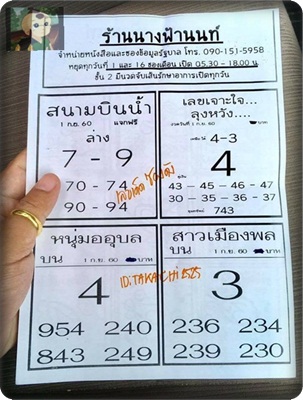 ร้านนางฟ้านนท์
จำหน่ายหนังสือและซองข้อมูลรัฐบาล โทร. 090-151-5958
หยุดทุกวันที่ 1 และ 16 ของเดือน เปิด 05.30 - 18.00 น.
ชั้น 2 มีนวดจับเส้นรักษาอาการเปิดทุกวัน
สนามบินน้ำ
1 ก.ย. 60 แจกฟรี
ล่าง
7 - 9
70 - 74
90 - 94
เลขเจาะใจ...
ลุงหวัง....
งวดวันที่ 1 ก.ย. 60 บาท
4-3
4
43 - 45 - 46 - 47
30 - 35 - 36 - 37
743
หนุ่มออุบล
บน 1 ก.ย. 60 บาท
4
954 240
843 249
สาวเมืองพล
บน 1 ก.ย. 60 บาท
3
236 234
239 230
ID:TAKACHI2525